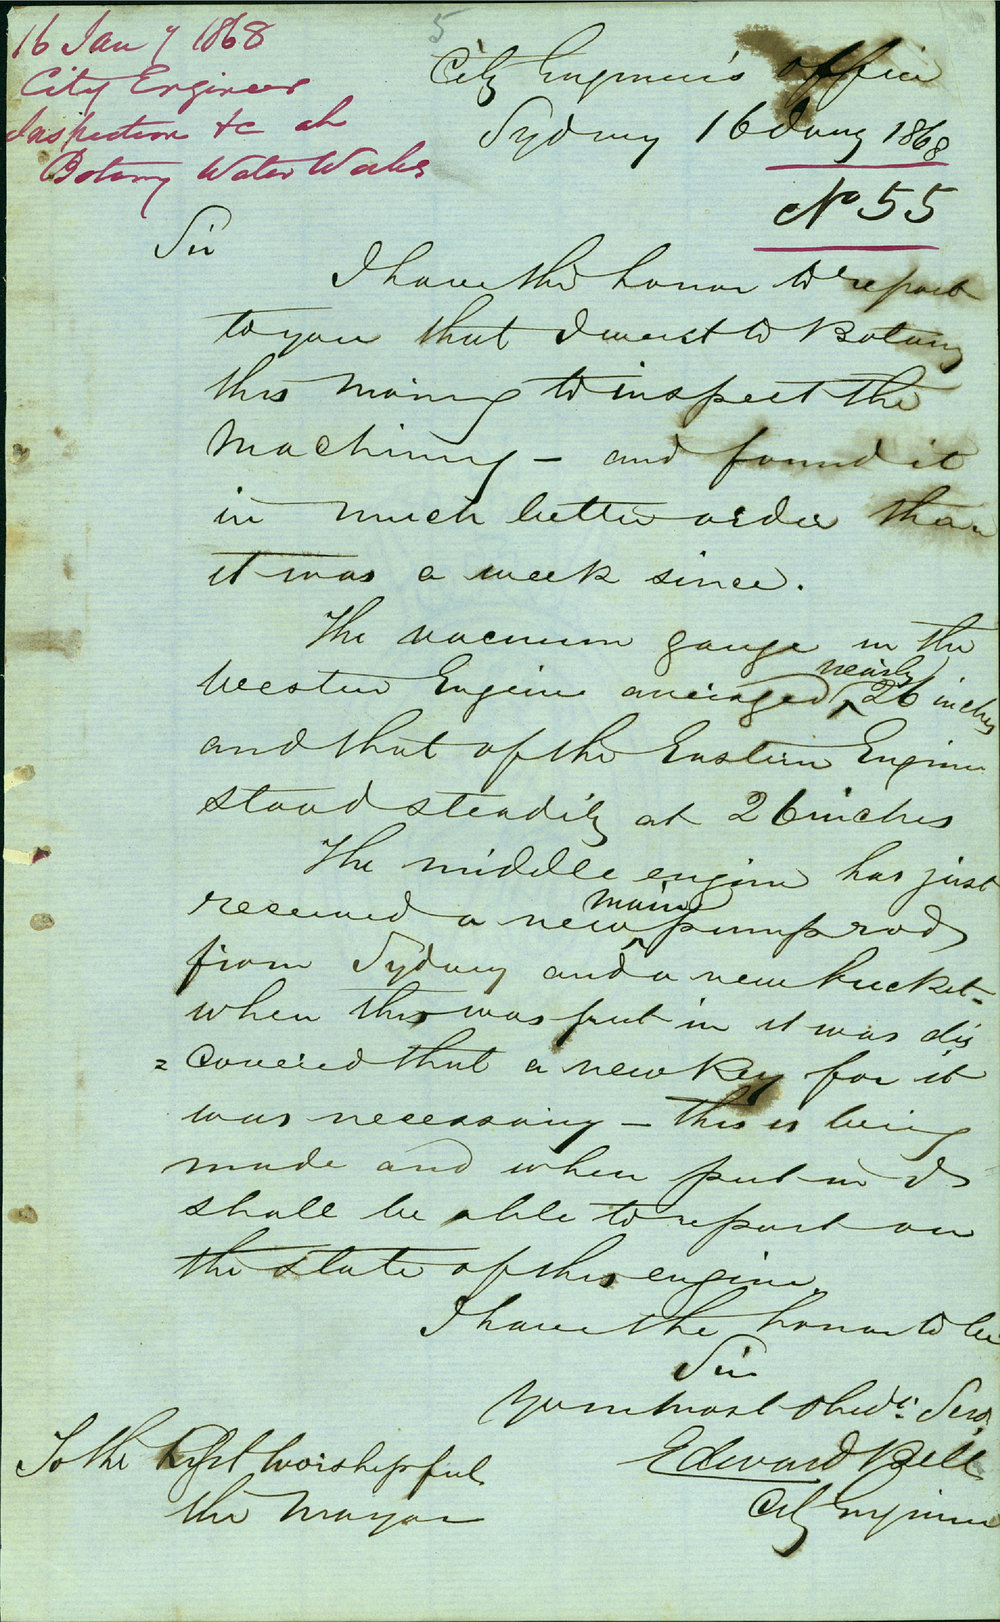 5
16 Jany 1868
City Engineer
Inspection &c at
Botany Water Works
City Engineer's Office
Sydney 16 Jany 1868
No 55
Sir
I have the honor to report
to you that I went to Botany
this morning to inspect the
Machinery – and found it
in much better order than
it was a week since.
The vacuum gauge in the
Western Engine averaged nearly 26 inches
and that of the Eastern Engine
stood steadily at 26 inches
The middle engine has just
received a new main pump rod
from Sydney and a new bucket –
when this was put in it was dis
= covered that a new key for it
was necessary – this is being
made and when put in I
shall be able to report on
the state of this engine.
I have the honor to be
Sir
Your most Obedt. Servt.
Edward Bell
City Engineer
To the Right Worshipful
the Mayor